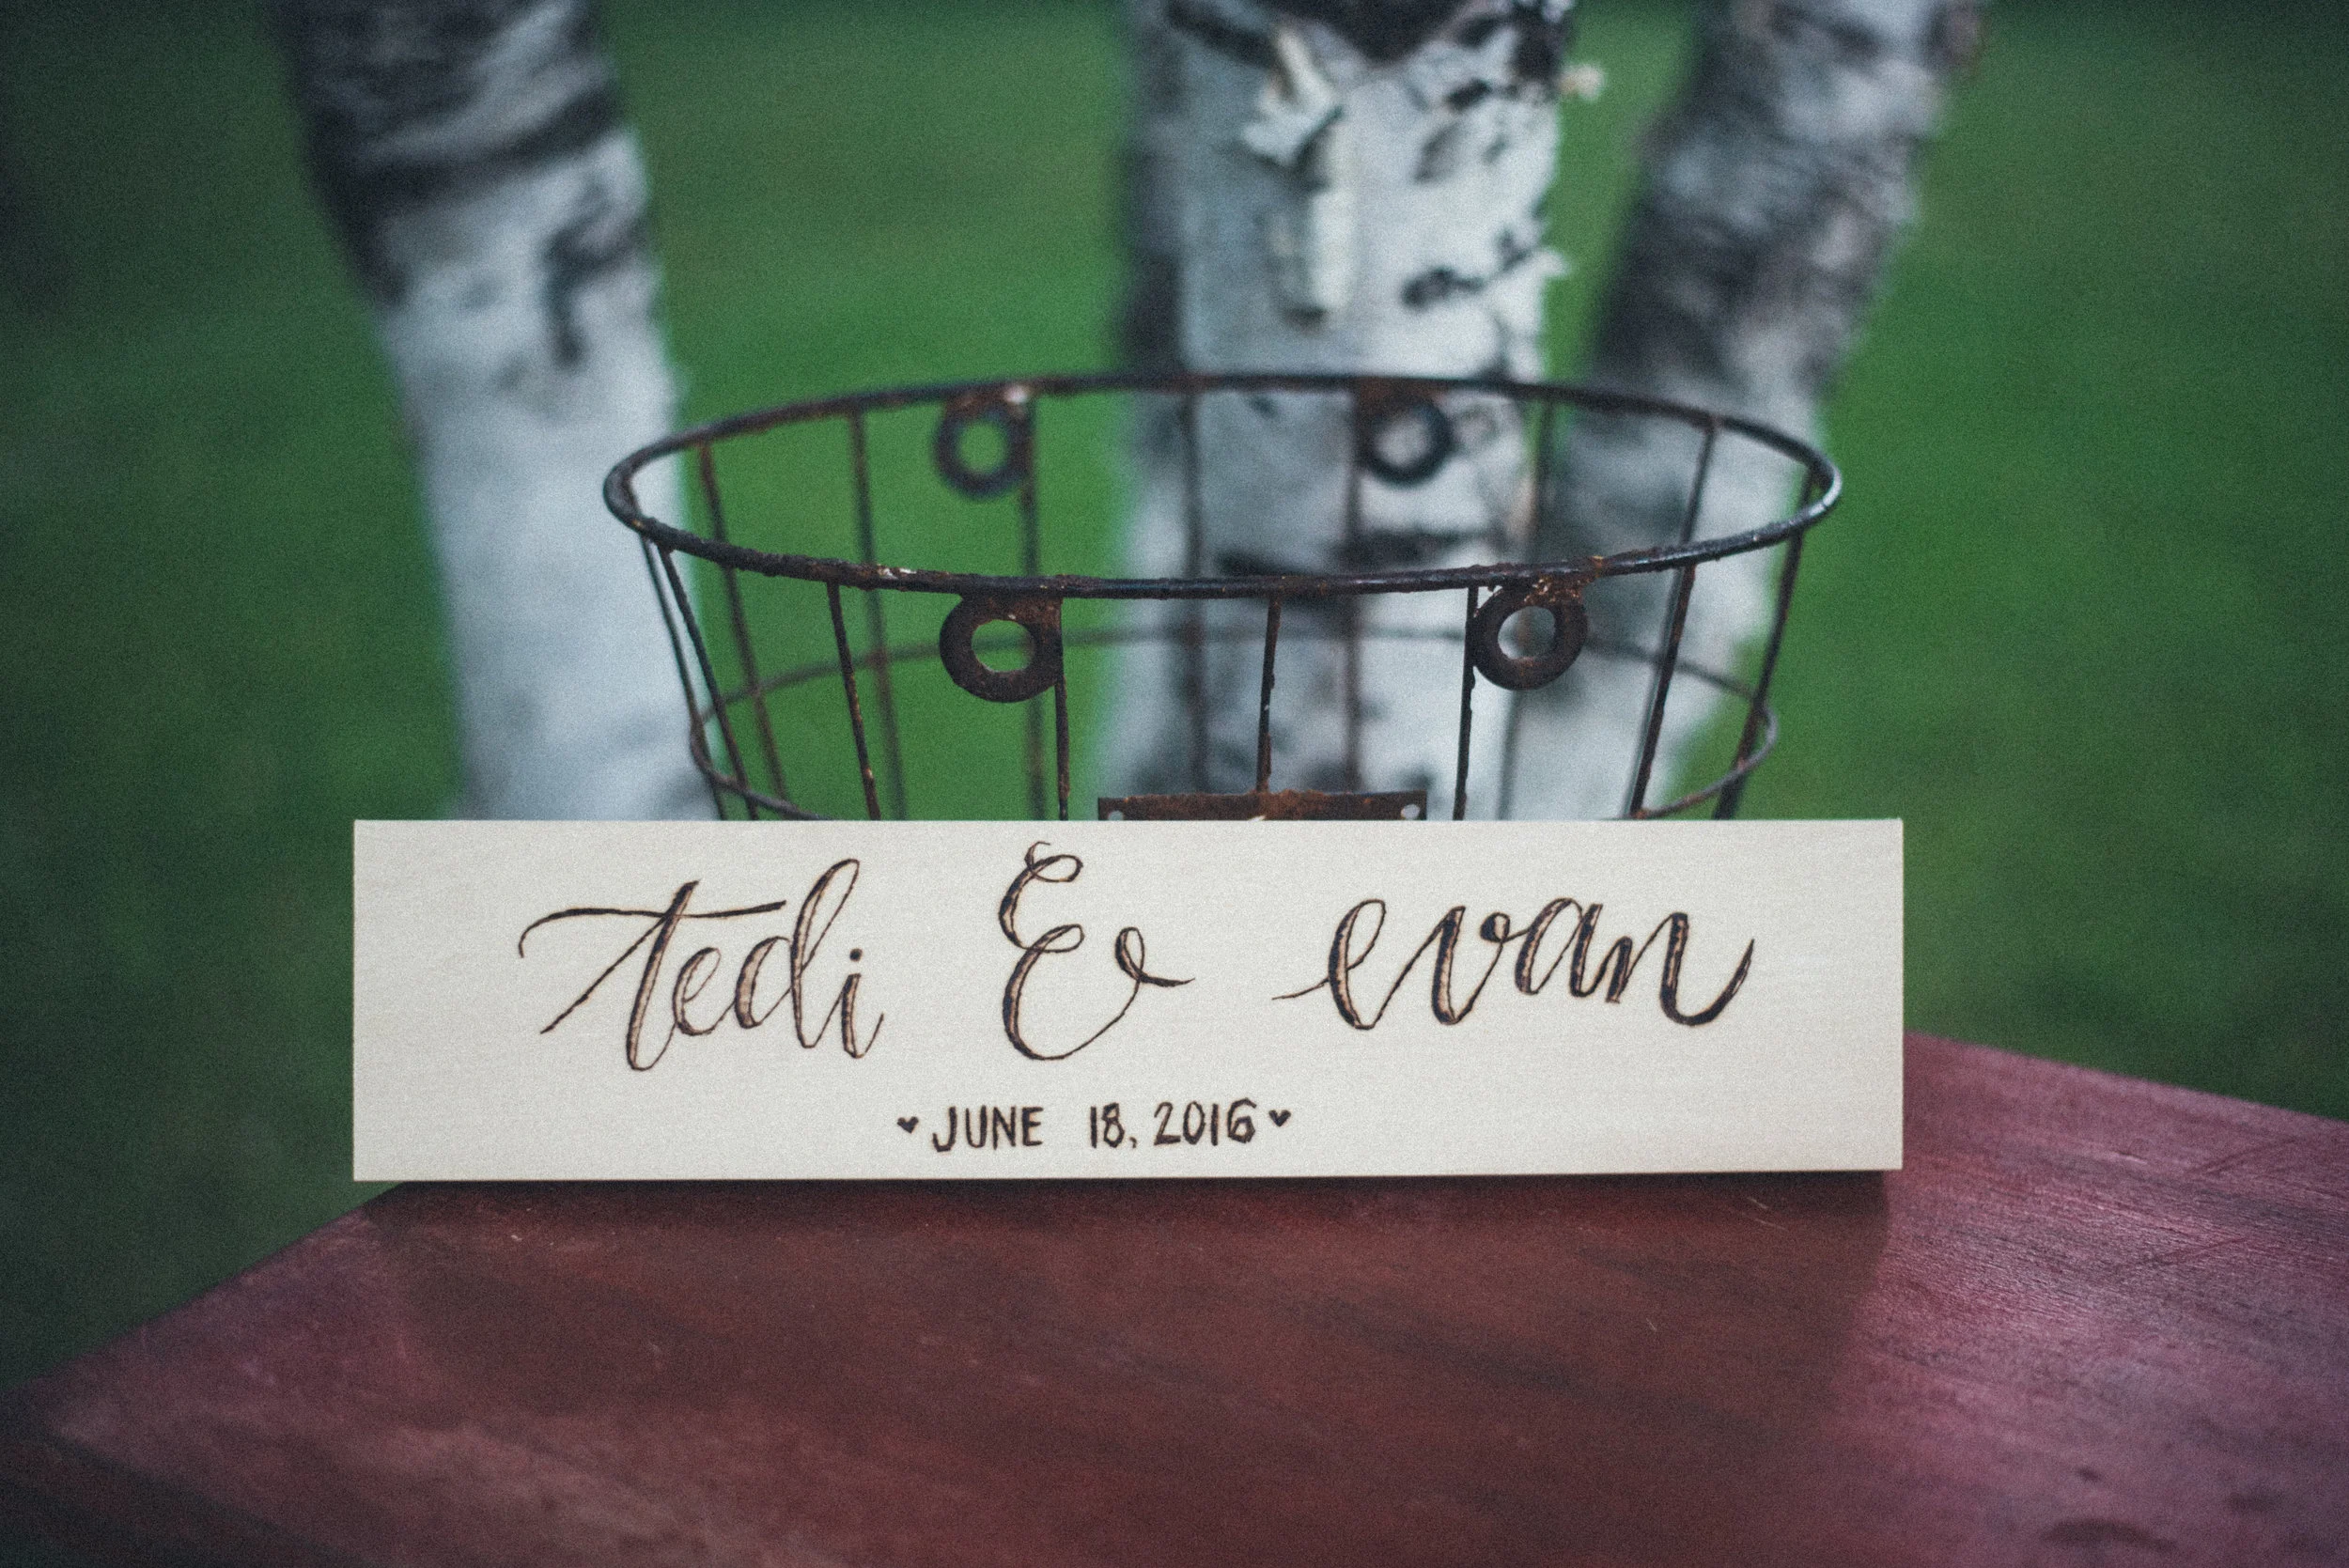 tedi & evan
♥ JUNE 18, 2016 ♥